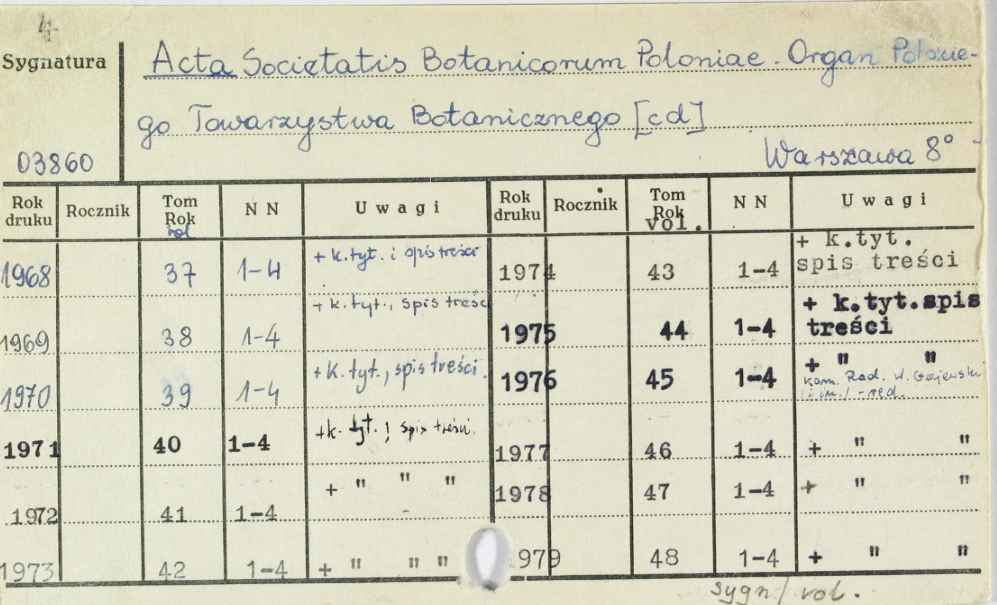 4
Sygnatura
03860
Acta Societatis Botanicorum Poloniae. Organ Polskie-
go Towarzystwa Botanicznego [cd]
Warszawa 8°
Rok druku Rocznik Tom Rok vol N N Uwagi Rok druku Rocznik Tom Rok vol. N N Uwagi
1968 37 1-4 + k.tyt. i spis treści 1974 43 1-4 + k.tyt. spis treści
1969 38 1-4 + k.tyt., spis treści 1975 44 1-4 + k.tyt.spis treści
1970 39 1-4 + k.tyt., spis treści. 1976 45 1-4 + " " Kom. Red. W. Gajewski -red.
1971 40 1-4 +k. tyt., spis treści. 1977 46 1-4 + " "
1972 41 1-4 + " " " 1978 47 1-4 + " "
1973 42 1-4 + " " " 1979 48 1-4 + " "
sygn/ vol.